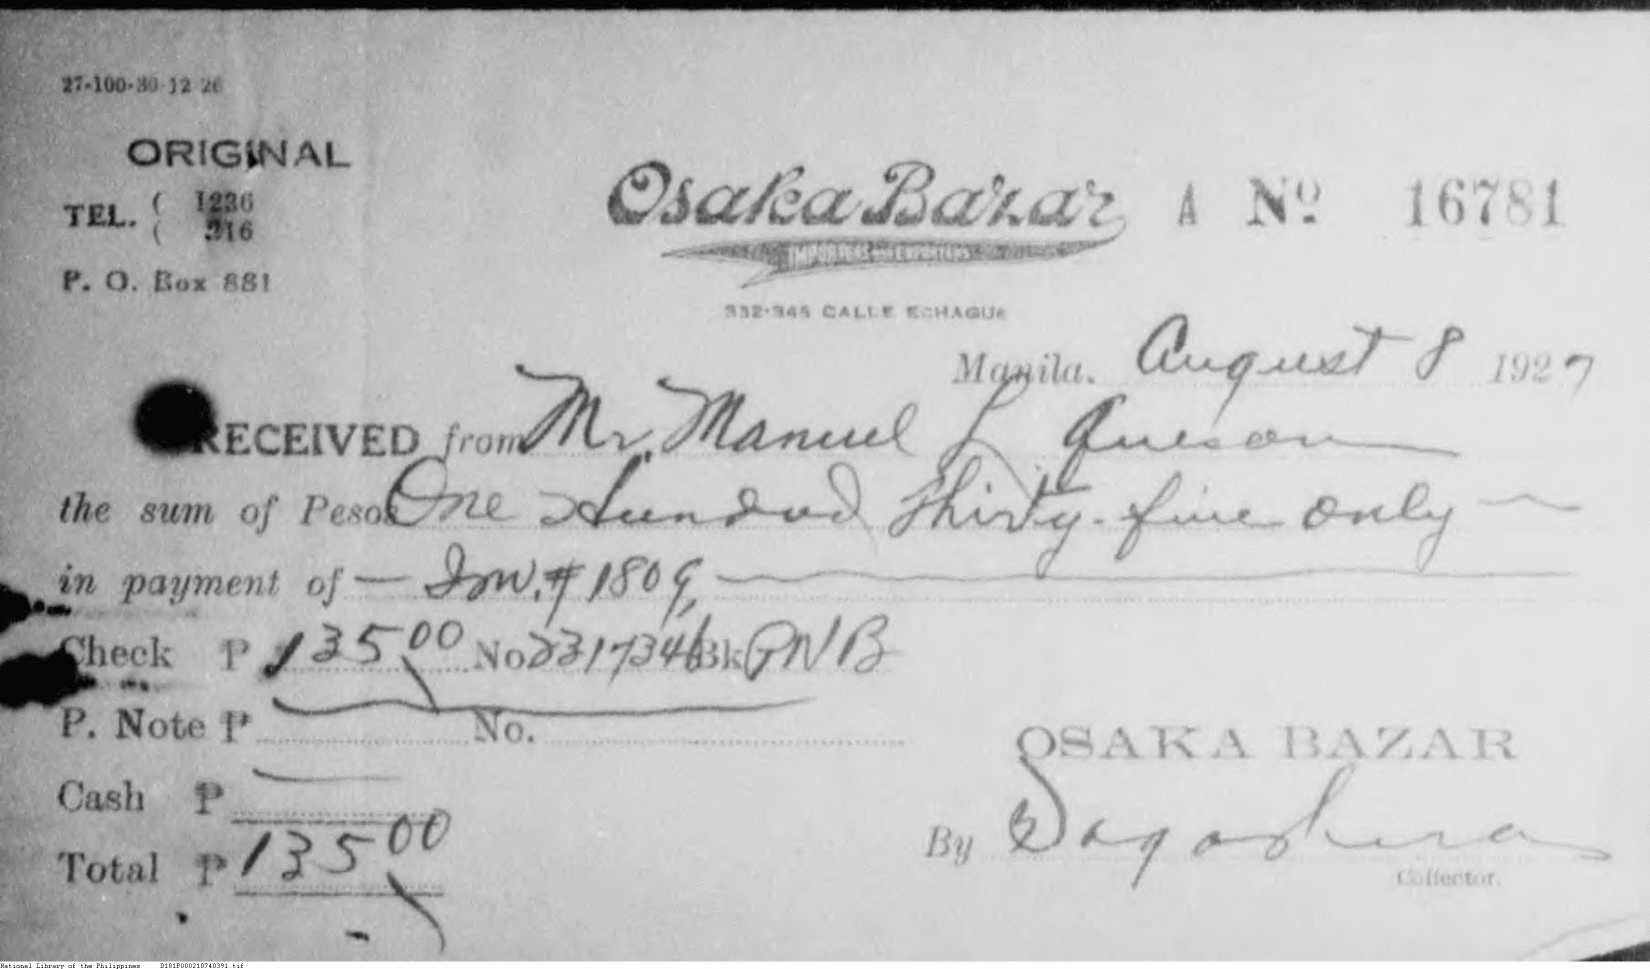 27-100-30-12 26
ORIGINAL
TEL. ( 1236
( 316
P. O. Box 881
Osaka Bazar A No 16781
IMPORTERS AND EXPORTERS
332-345 CALLE ECHAGUE
Manila. August 8 1927
RECEIVED from Mr. Manuel L Quezon
the sum of Pesos One Hundred Thirty-five only
in payment of — Inv. # 1809,
Check ₱ 135.00 No 2317346 Bk PNB
P. Note ₱ No.
Cash ₱
Total ₱ 135.00
OSAKA BAZAR
By
Collector.
National Library of the Philippines D101P000210740391.tif